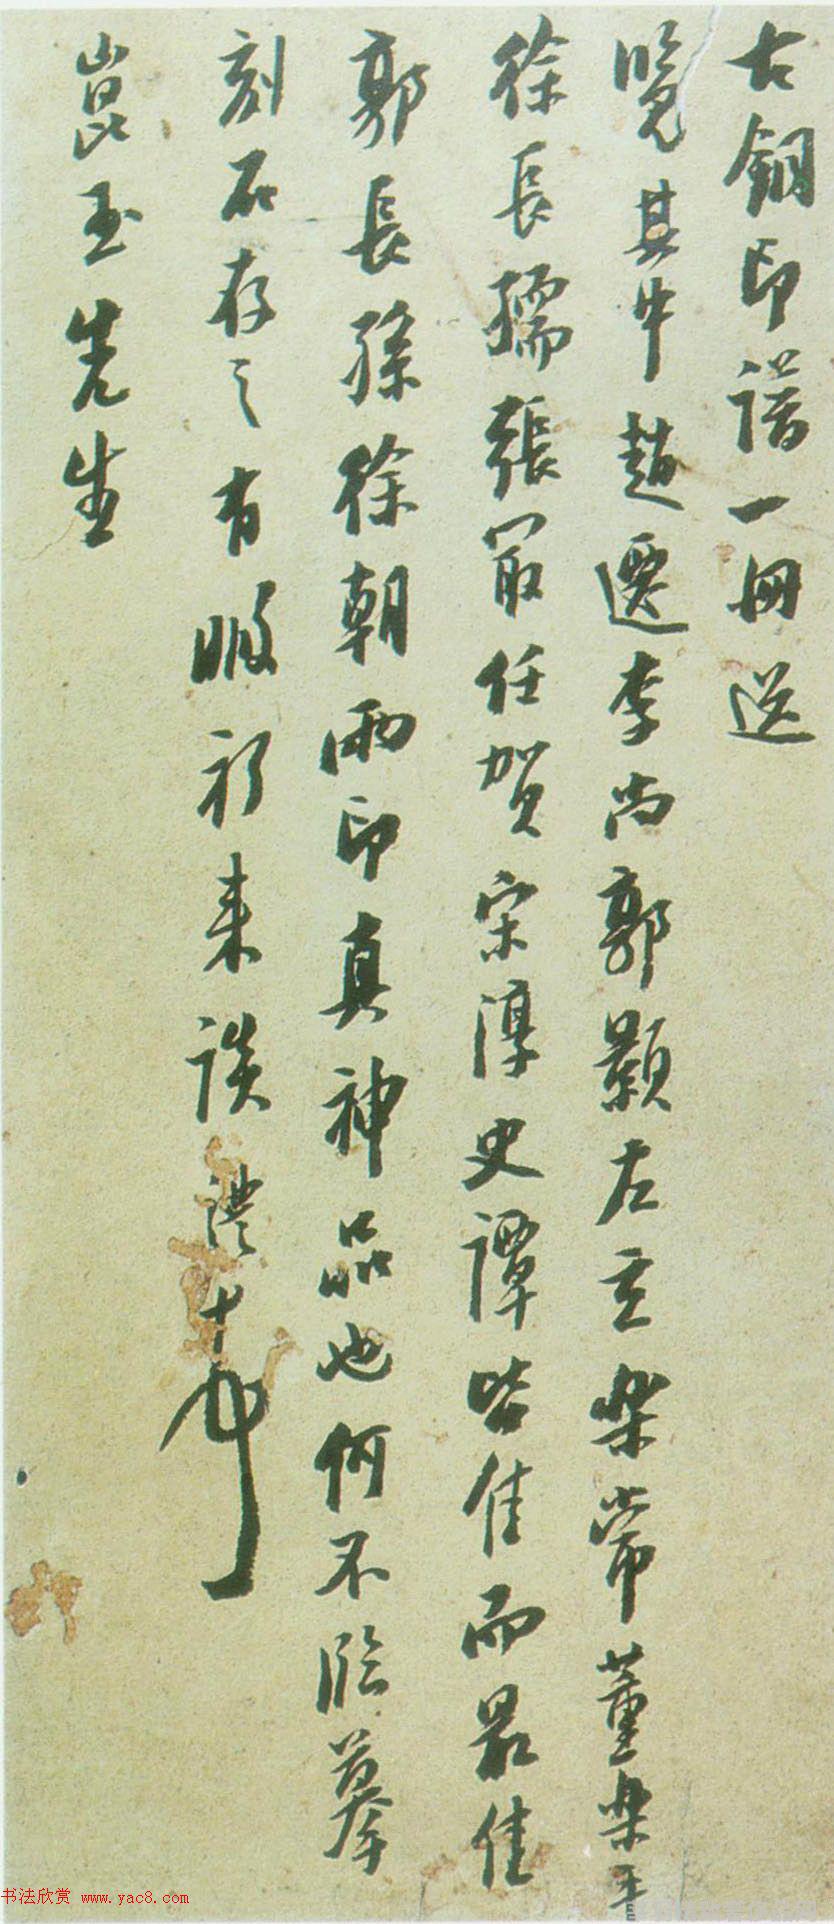 古銅印譜一冊送
覽其中趙遷李尚郭顥左立樂常董樂王
徐長孺張冣任賀宋淳史譚皆佳而最佳
郭長孫徐朝兩印真神品也何不臨摹
刻石存之有暇祈来談澧十
崑玉先生
书法欣赏 www.yac8.com